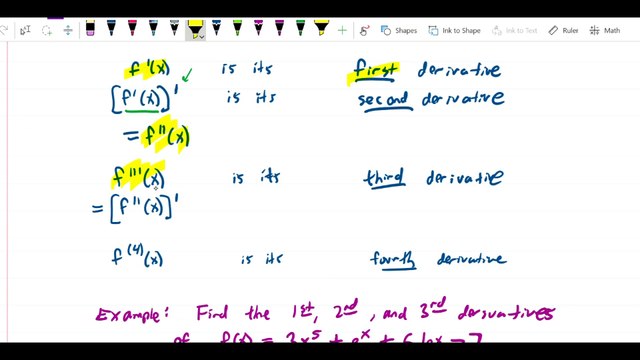 Shapes Ink to Shape Ink to Text Math
f'(x) is its first derivative
[f'(x)]' is its second derivative
= f''(x)
f'''(x) is its third derivative
= [f''(x)]'
f⁽⁴⁾(x) is its fourth derivative
Example: Find the 1st, 2nd, and 3rd derivatives
of f(x) = 3x⁵ + eˣ + 6 ln x - 7